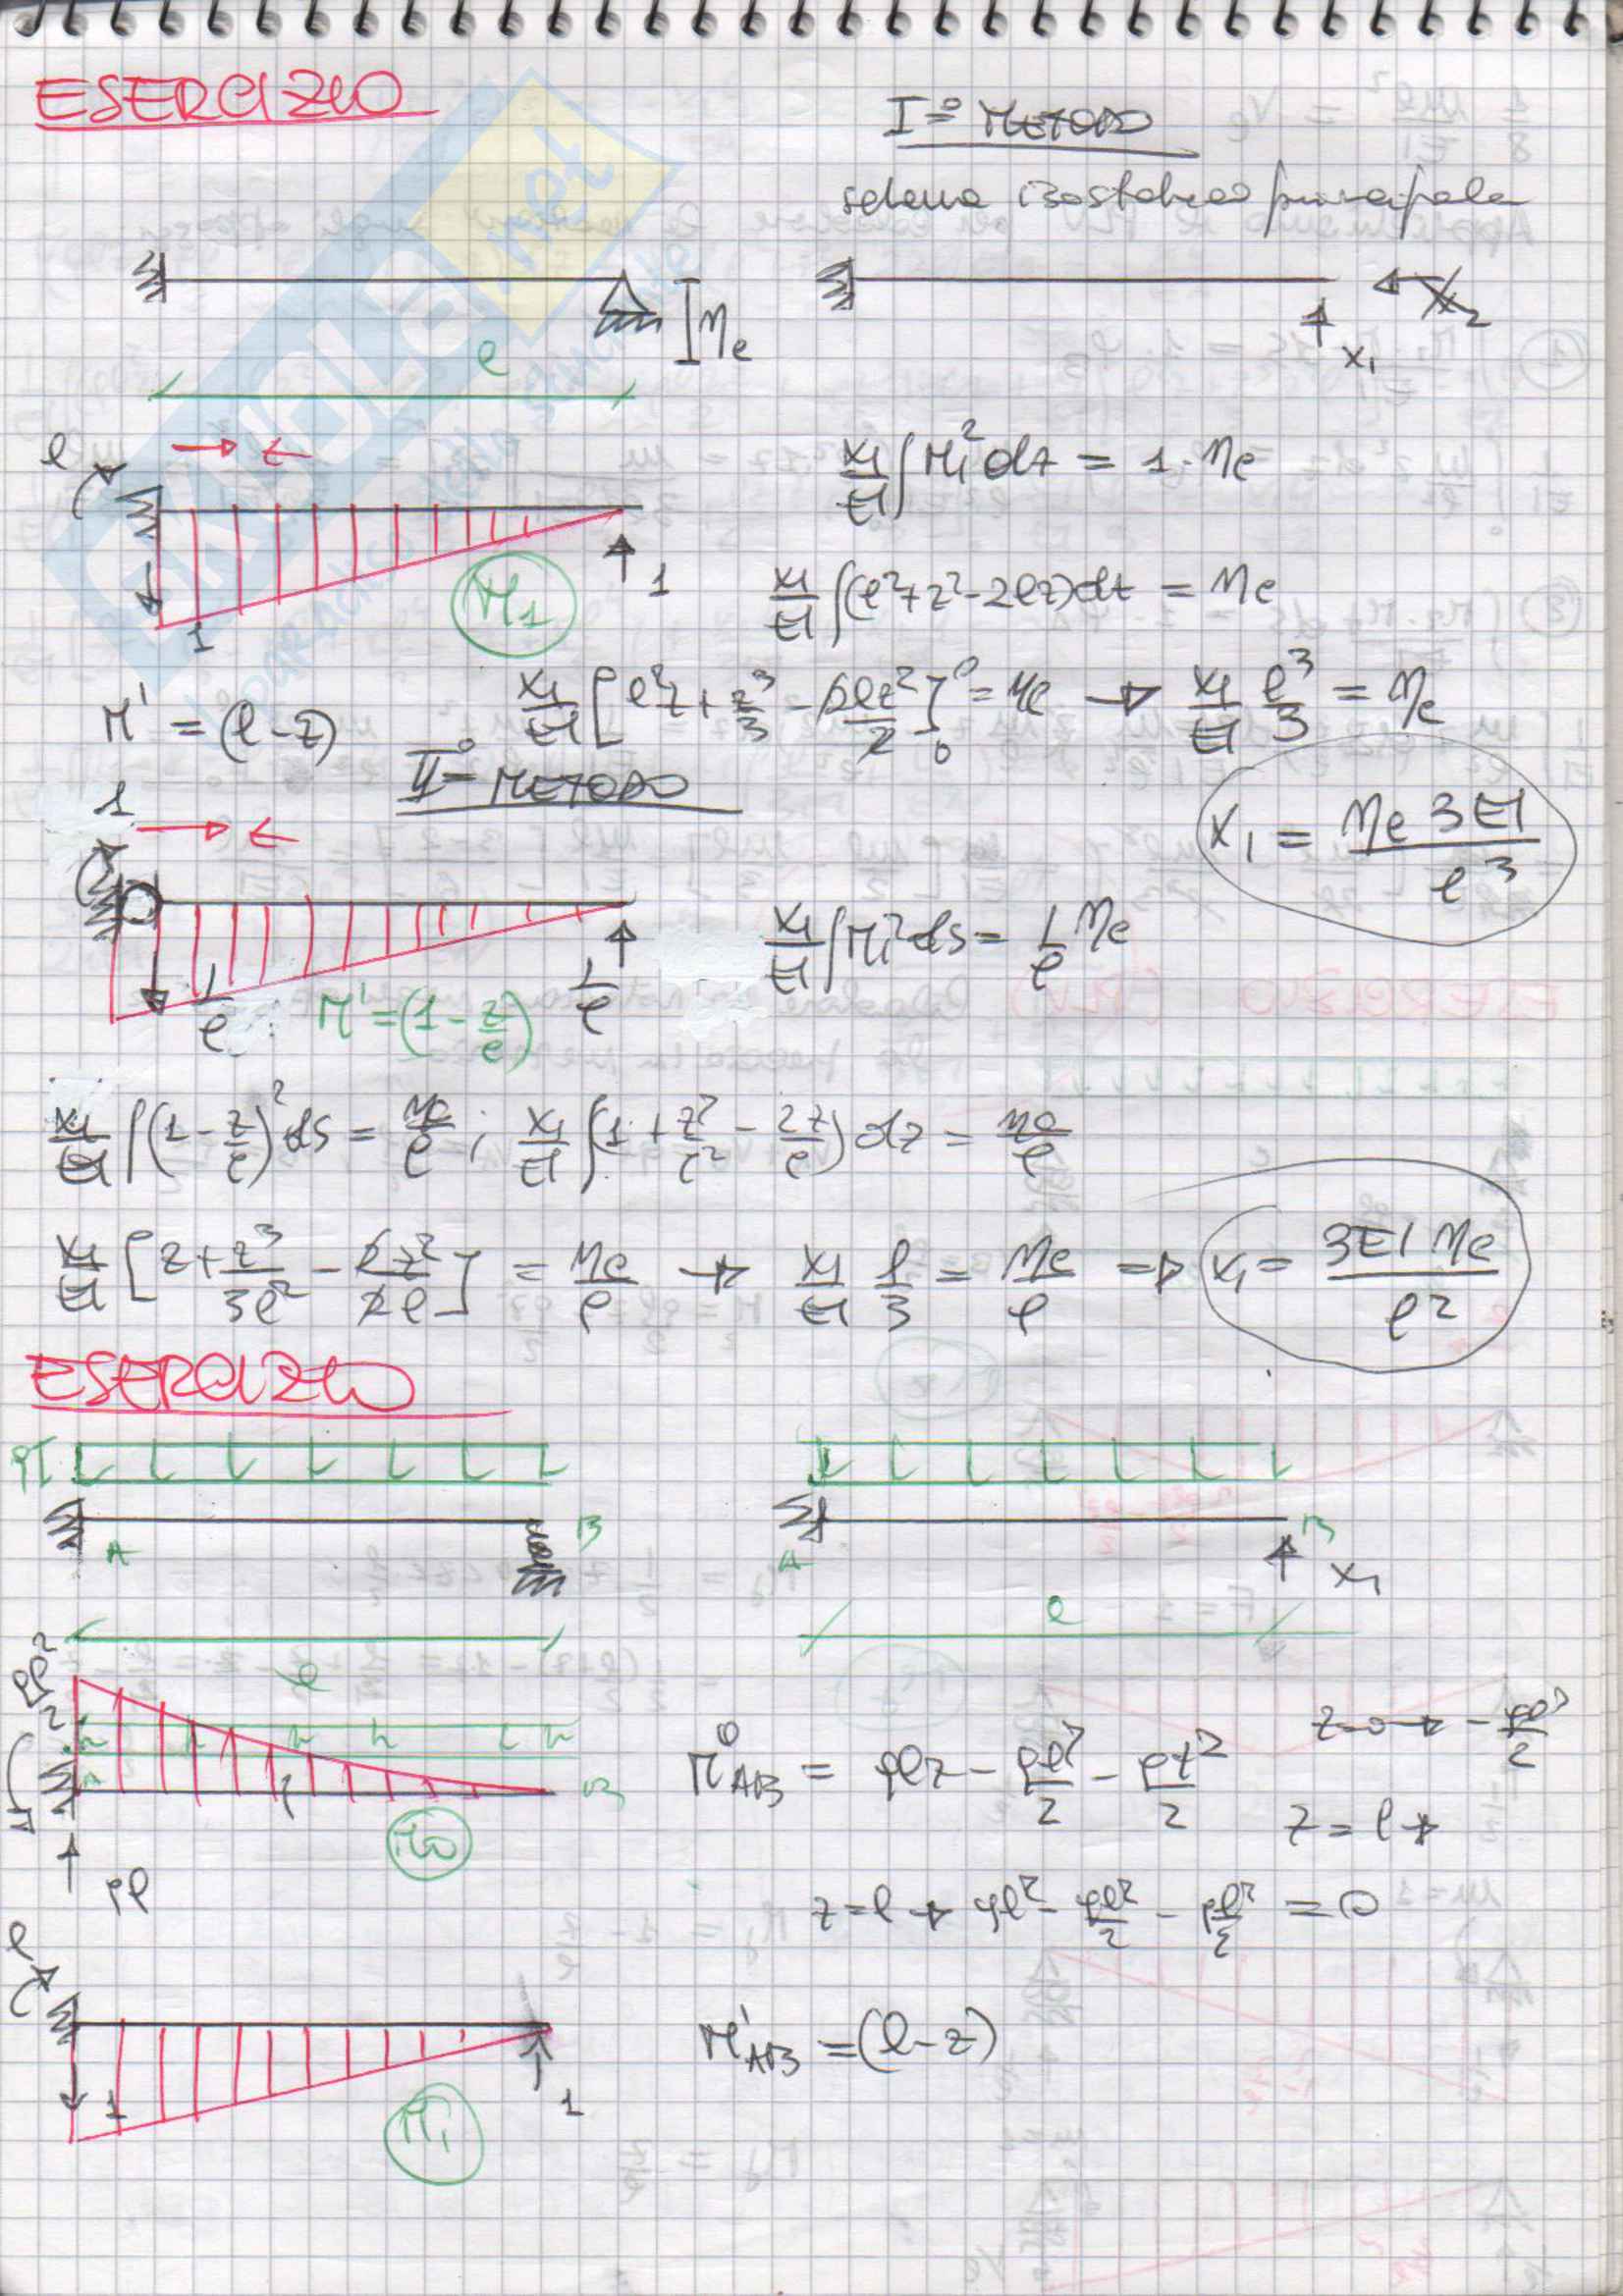 ESERCIZIO
I° METODO
schema isostatico principale
η_e
l
x_1
x_2
l
M_1
1
1
x_1/EI ∫ M_1^2 dz = 1·η_e
x_1/EI ∫(l^2+z^2-2lz)dz = η_e
M' = (l-z)
x_1/EI [l^2z + z^3/3 - 2lz^2/2]_0^l = η_e → x_1/EI l^3/3 = η_e
II° METODO
x_1 = η_e 3EI / l^3
1
1/l
M' = (1 - z/l)
1/l
x_1/EI ∫ M_1^2 ds = 1/l η_e
x_1/EI ∫(1 - z/l)^2 ds = η_e/l ; x_1/EI ∫(1 + z^2/l^2 - 2z/l) dz = η_e/l
x_1/EI [z + z^3/3l^2 - 2z^2/2l] = η_e/l → x_1/EI l/3 = η_e/l ⇒ x_1 = 3EI η_e / l^2
ESERCIZIO
p
A
B
A
B
x_1
l
l
pl^2/2
A
B
M_0
pl
M^0_AB = plz - pl^2/2 - pz^2/2
z=0 → - pl^2/2
z = l →
z=l → pl^2 - pl^2/2 - pl^2/2 = 0
l
1
M_1
1
M'_AB = (l-z)